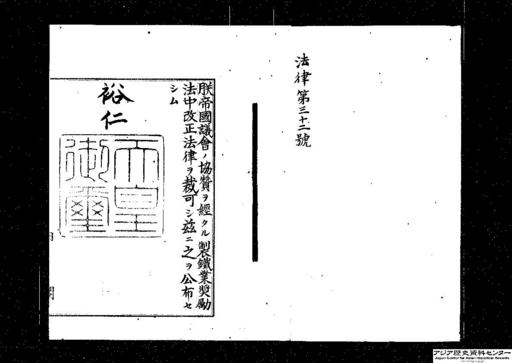 法律第三十二號
朕帝國議會ノ協贊ヲ經タル製鐵業奬勵
法中改正法律ヲ裁可シ茲ニ之ヲ公布セ
シム
裕仁
天皇
御璽
内
閣
アジア歴史資料センター
Japan Center for Asian Historical Records